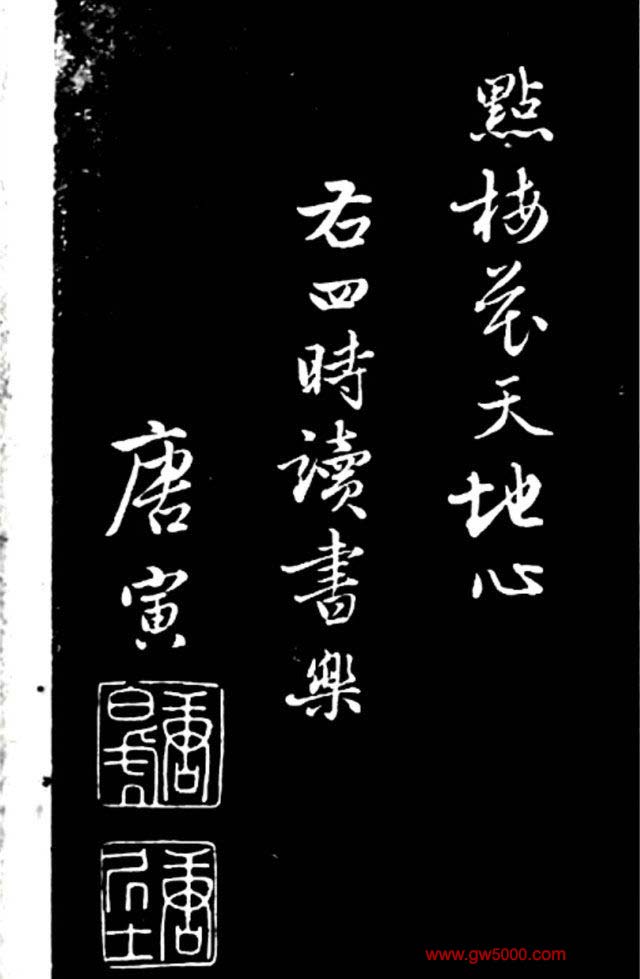 點梅花天地心
右四時讀書樂
唐寅
唐白虎
唐居士
www.gw5000.com